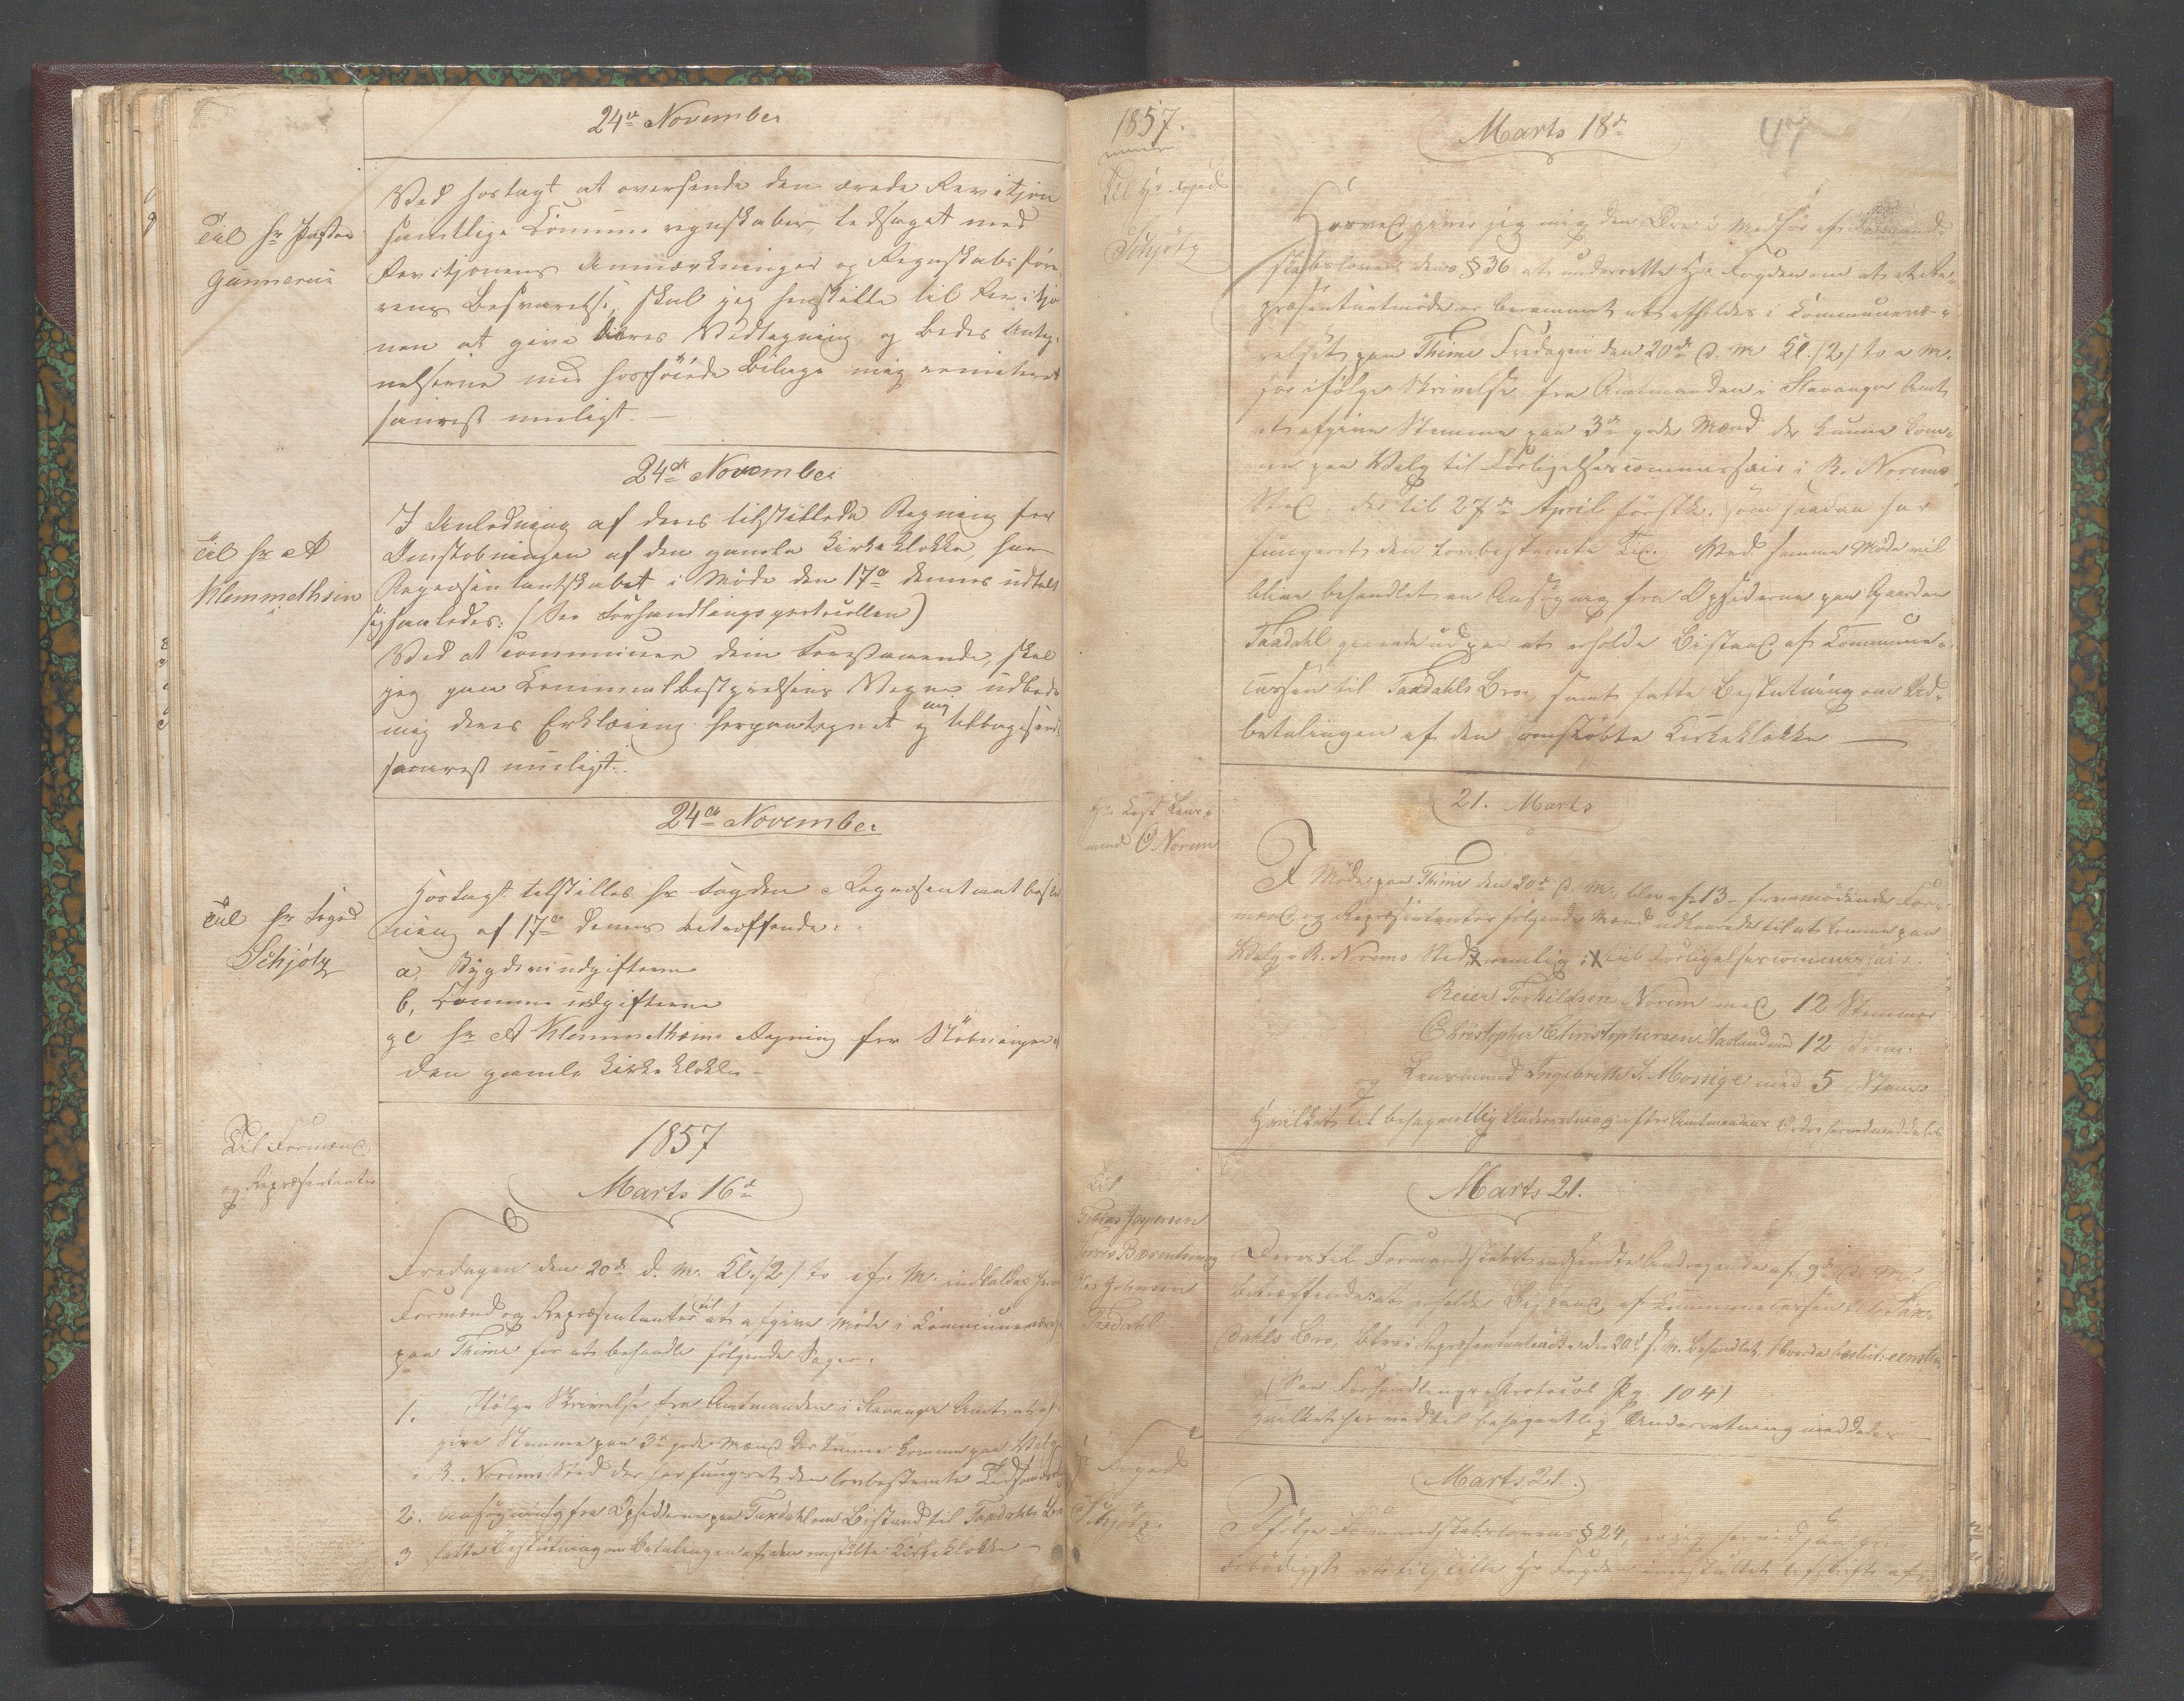 24de November
Til Hr Pastor
Gunnerus
Ved hoslagt at oversende den ærede Revisjon
samtlige Commune regnskaber, ledsaget med
Revisjonens Anmærkninger og Regnskabsføre
rens Besvarelse, skal jeg henstille til Revisjo
nen at give deres Vedtegning og bedes Anteg-
nelserne med hosføiede Bilage mig remiteret
snarest muligt.
24de November
Til Hr A
Klemmethsen
I Anledning af deres tilstillede Regning for
Omstøbningen af den gamle Kirkeklokke, har
Repræsentantskabet i Møde den 17de dennes udtalt
sig saaledes: (See Forhandlingsprotocollen)
Ved at communicere dem Foranstaaende, skal
jeg paa Communalbestyrelsens Vegne udbede
mig deres Erklæring herpaategnet og mig tilbagesendt
snarest muligt.
24de November
Til Hr Foged
Schjøtz
Hoslagt tilstilles Hr Fogden Repræsentant beslut
ning af 17de dennes betræffende:
a, Bygdeudgifterne
b, Commune udgifterne
c Hr A Klemmethsens Regning for Støbningen af
den gamle Kirkeklokke -
1857
Marts 16de
Til Formænd
og Repræsentanter
Fredagen den 20de d. M. Kl. /2/ to ef. M. indkaldes Herrer
Formænd og Repræsentanter til at afgive Møde i Communeværelset
paa Thime for at behandle følgende Sager:
1. Ifølge Skrivelse fra Amtmanden i Stavanger Amt at af-
give Stemme paa 3de gode Mænd der kunne komme paa Valg
i R. Norems Sted der har fungeret den lovbestemte Tid som
2. Ansøgning fra Opsidderne paa Taxdahl om Bistand til Taxdahls Bro
3 fatte Beslutning om Betalingen af den omstøbte Kirkeklokke -
1857.
Marts 18de
47
Til Hr Foged
Schjøtz
Herved giver jeg mig den Ære i Medhør af Formand-
skabslovens dens § 36 at underrette Hr. Fogden om at et Re-
præsentantmøde er berammet at afholdes i Communevæ-
relset paa Thime Fredagen den 20de d. M Kl. /2/ to e M.
for ifølge Skrivelse fra Amtmanden i Stavanger Amt
at afgive Stemme paa 3de gode Mænd der kunne kom-
me paa Valg til Forligelsescommissair i R. Norems
Sted, der til 27de April førstk. som saadan har
fungeret den lovbestemte Tid. Ved samme Møde vil
blive behandlet en Ansøgning fra Opsiderne paa Gaarden
Taxdahl gaaende ud paa at erholde Bistand af Commune-
cassen til Taxdahls Bro, samt fatte Beslutning om Ud-
betalingen af den omstøbte Kirkeklokke
21. Marts
Hr. Lensmand O Norem
I Møde paa Thime den 20de d. M., blev af 13 fremmødende For-
mænd og Repræsentanter følgende Mænd udkaarede til at komme paa
Valg i R. Norems Sted, nemlig til Forligelsescommissair.
Reier Torkildsen Norem med 12 Stemmer
Christopher Christophersen Aasland med 12 Stem:
og Lensmand Ingebreth S. Mossige med 5 Stem:
Hvilket til behagenlig Underretning efter Amtmandens Ordre herved meddeles
Marts 21.
Til
Tobias Jespersen
Ole Johnsen
Taxdahl
Deres til Formandskabet indsendte Andragende af 9de d. M.
betræffende at erholde Bistand af Communecassen til Tax-
dahls Bro, blev i Repræsentantmøde den 20de d. M. behandlet, hvorda besluttet eenst:
(See Forhandlings Protocol Pg. 104)
Hvilket herved til behagentlig Underretning meddeles
Marts 21.
Hr Foged
Schjøtz.
Ifølge Formandskabslovens § 24, herved
ærbødigst at tilstille Hr Fogden Afskrift af